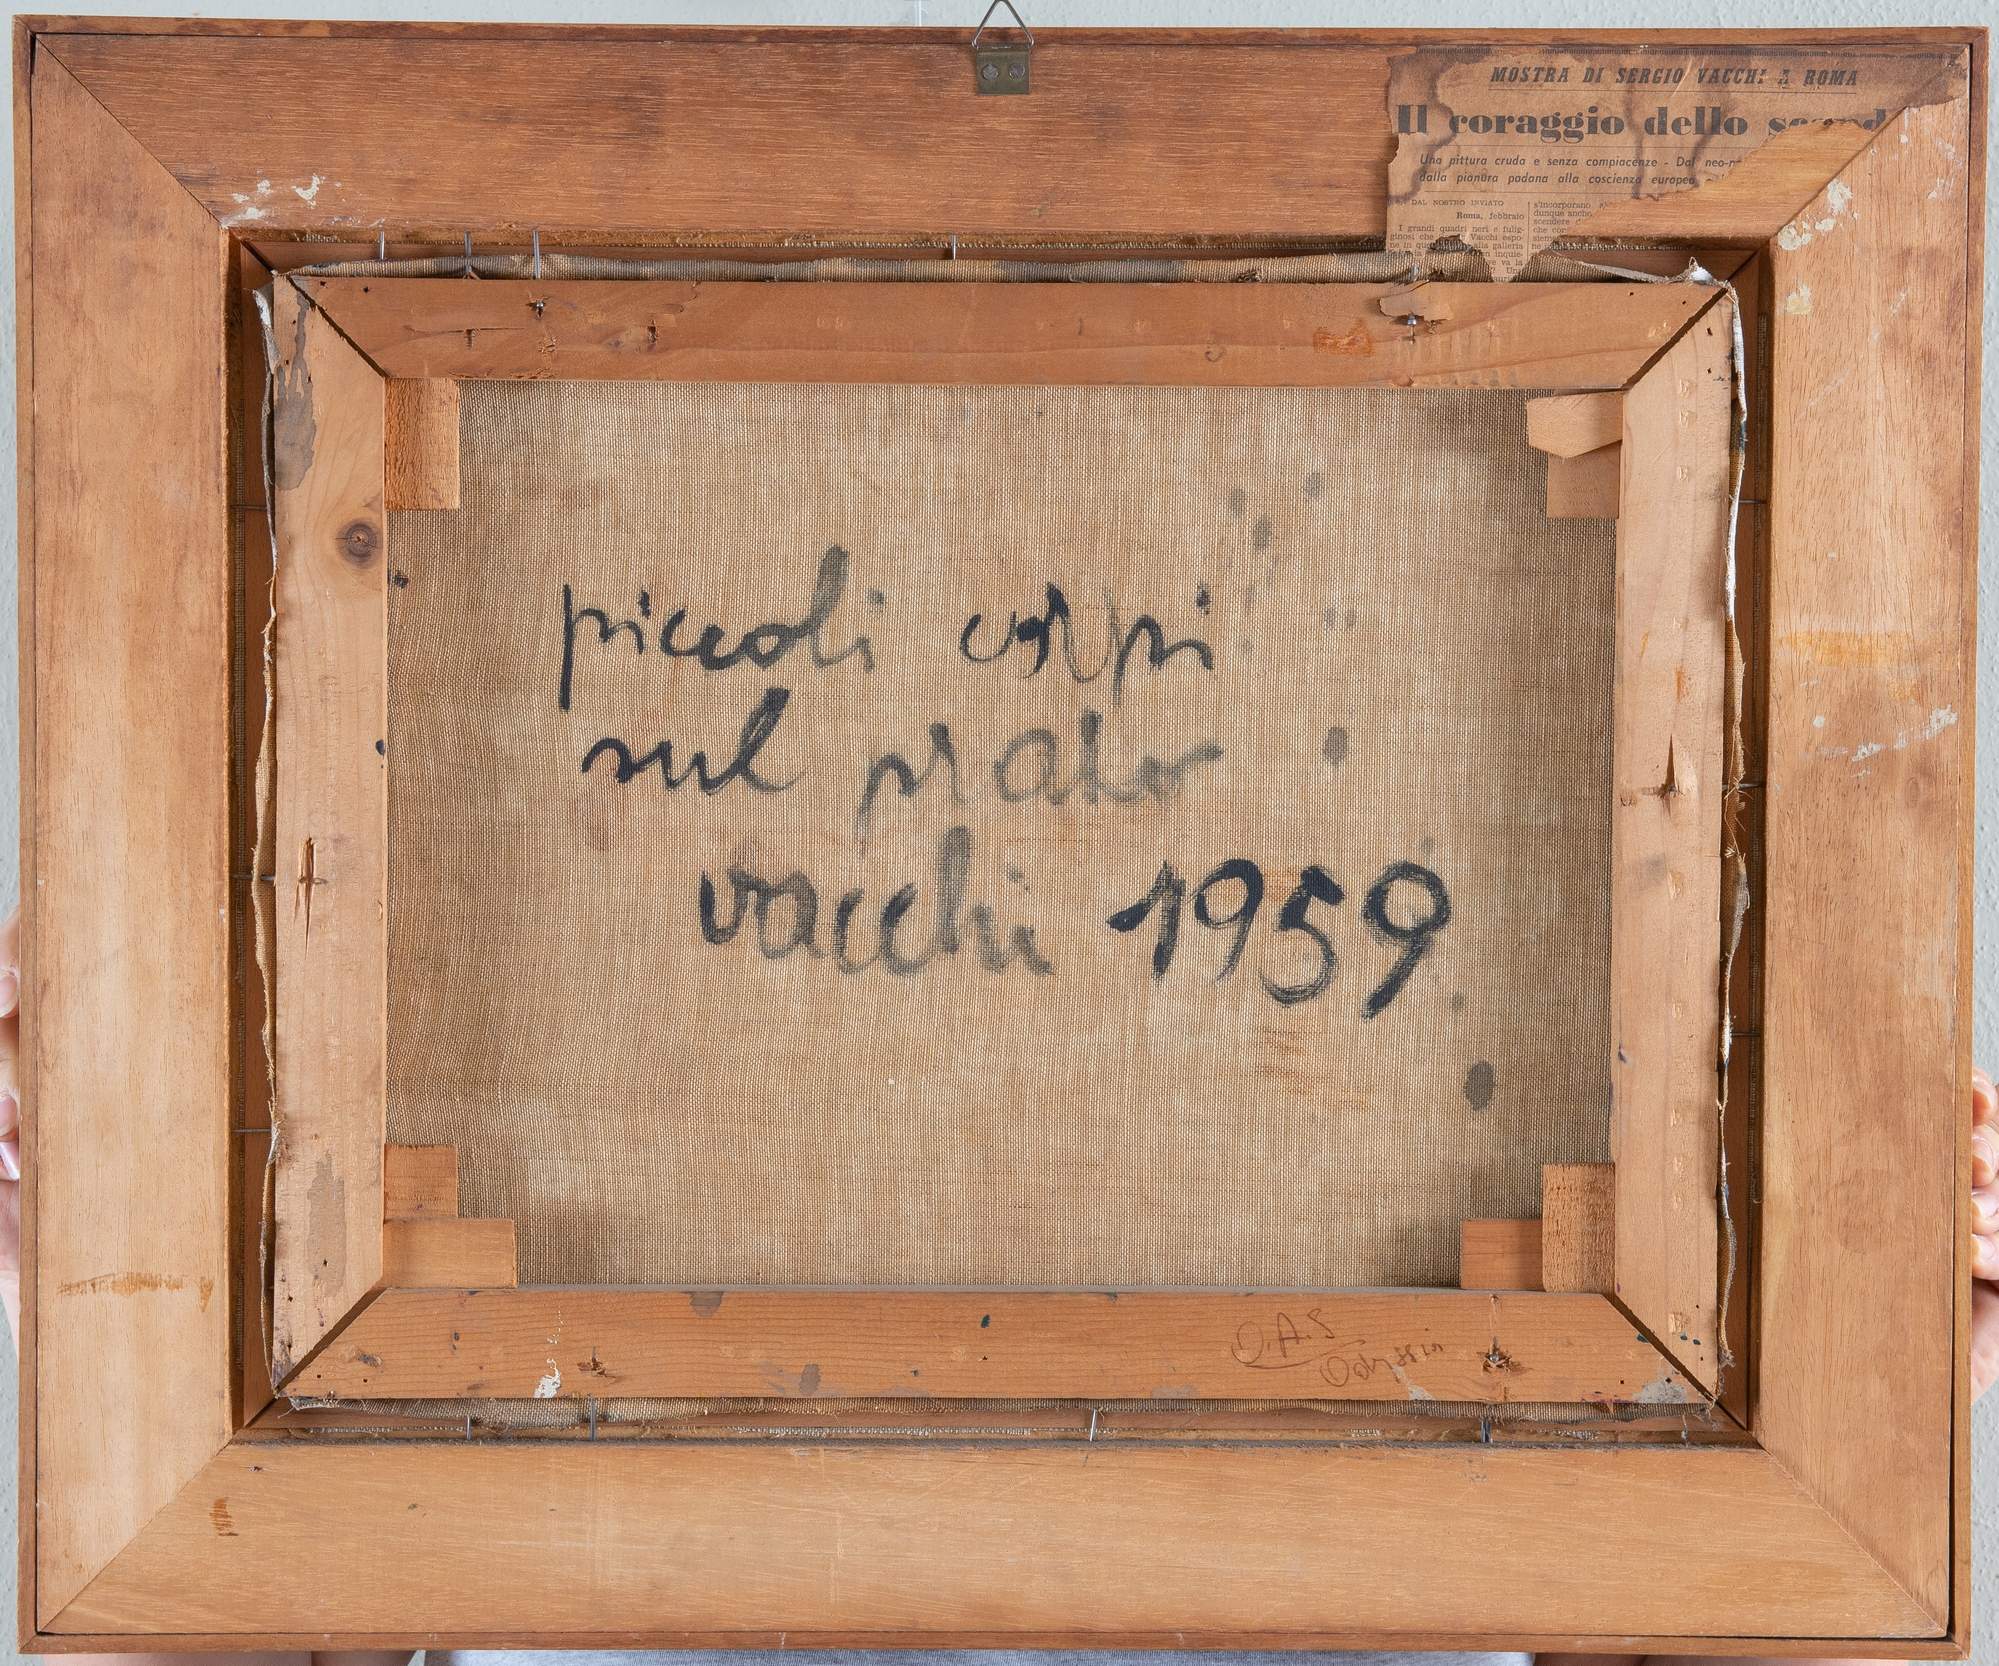 MOSTRA DI SERGIO VACCHI A ROMA
Il coraggio dello
Una pittura cruda e senza compiacenze - Dal
dalla pianura padana alla coscienza europea
DAL NOSTRO INVIATO
Roma, febbraio
I grandi quadri neri e fulig-
ginosi che Vacchi espo-
ne in alla galleria
la inquie-
va la
s'incorporano
dunque anche
scendere
che
piccoli corpi
sul prato
vacchi 1959
O.A.S